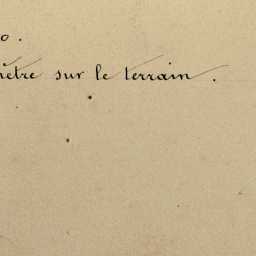 o.
mètre sur le terrain.